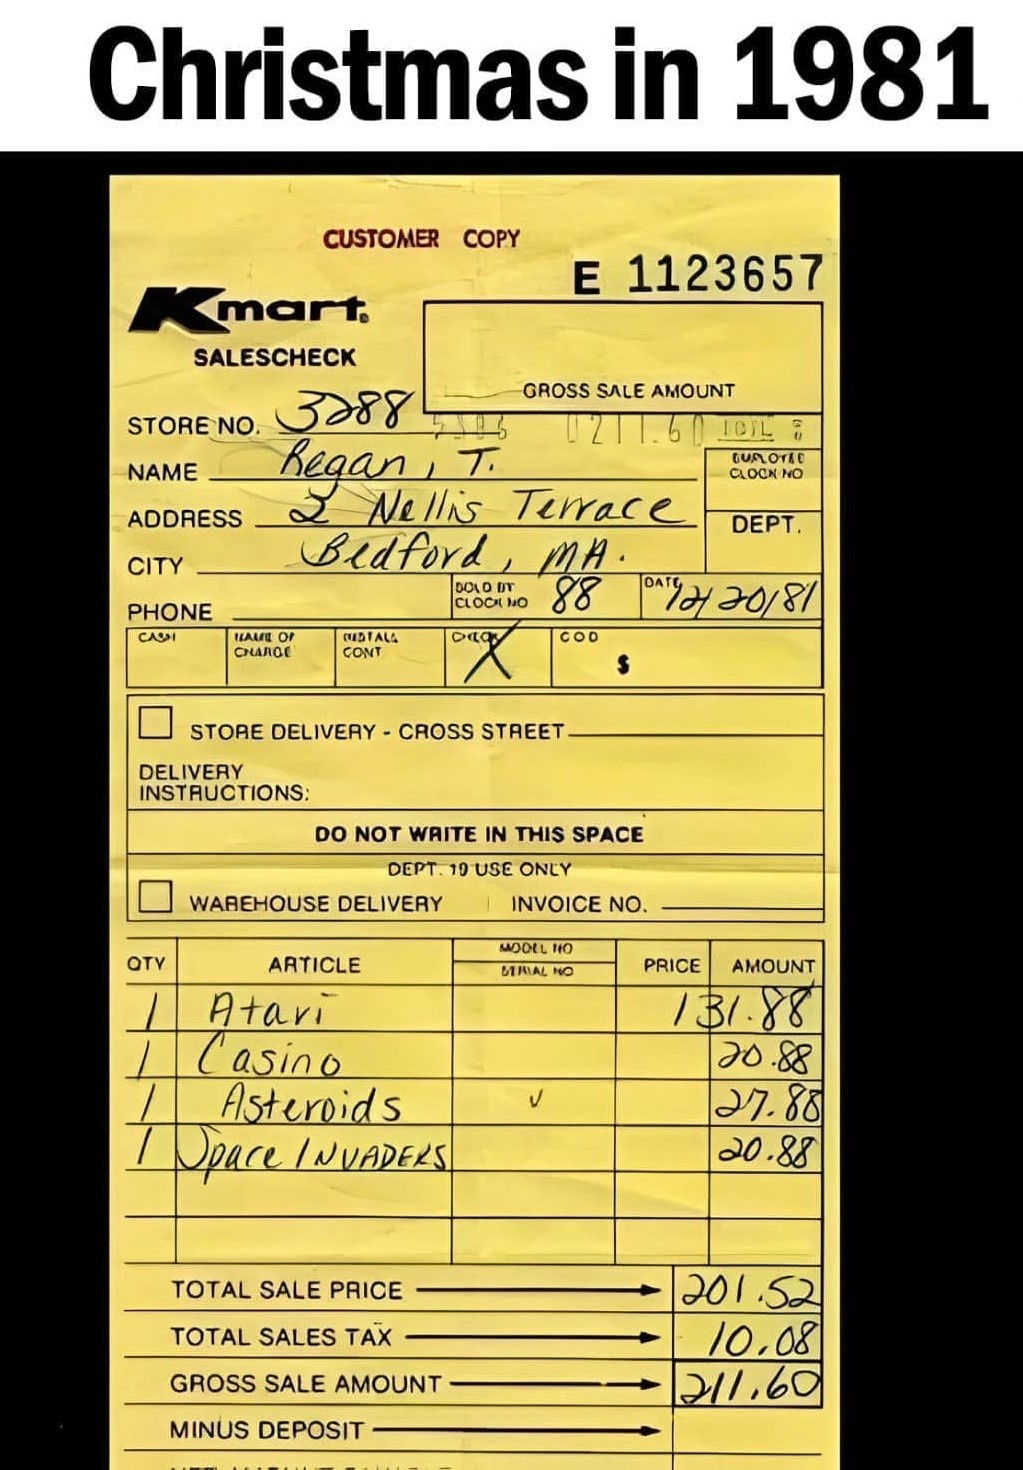 Christmas in 1981
CUSTOMER COPY
E 1123657
Kmart®
SALESCHECK
GROSS SALE AMOUNT
STORE NO. 3288
0211.60
NAME Regan, T.
CLOCK NO
ADDRESS 2 Nellis Terrace
DEPT.
CITY Bedford, MA.
PHONE
SOLD BY CLOCK NO 88
DATE 12/20/81
CASH
NAME OF CHARGE
CONT
X
COD
$
STORE DELIVERY - CROSS STREET
DELIVERY
INSTRUCTIONS:
DO NOT WRITE IN THIS SPACE
DEPT. 19 USE ONLY
WAREHOUSE DELIVERY INVOICE NO.
QTY ARTICLE MODEL NO SERIAL NO PRICE AMOUNT
1 Atari 131.88
1 Casino 20.88
1 Asteroids ✓ 27.88
1 Space INVADERS 20.88
TOTAL SALE PRICE 201.52
TOTAL SALES TAX 10.08
GROSS SALE AMOUNT 211.60
MINUS DEPOSIT